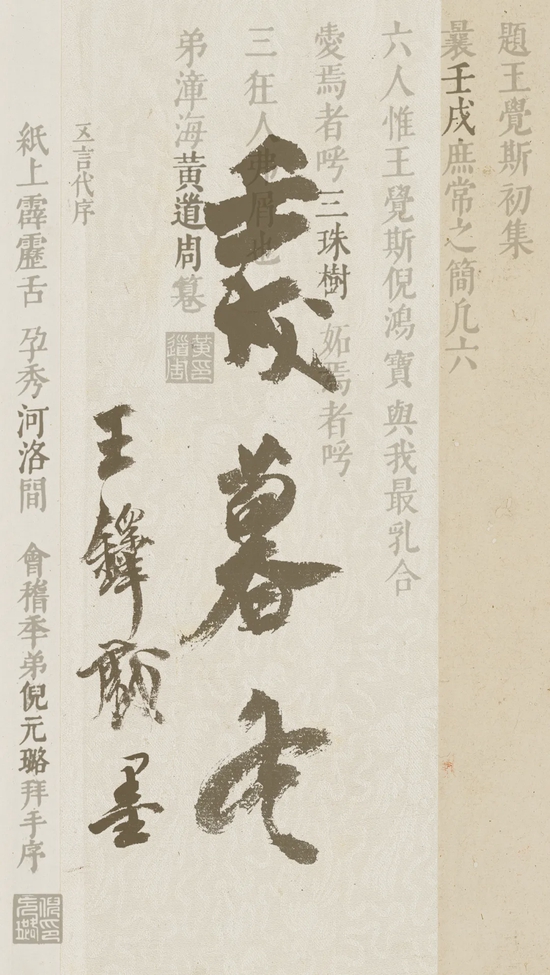 題王覺斯初集
曩壬戌庶常之簡凡六
六人惟王覺斯倪鴻寶與我最乳合
愛焉者呼三珠樹 妬焉者呼
三狂人弗屑也
弟漳海黃道周
壬戌暮冬
王鐸 墨
五言代序
紙上霹靂舌 孕秀河洛間 會稽年弟倪元璐拜手序